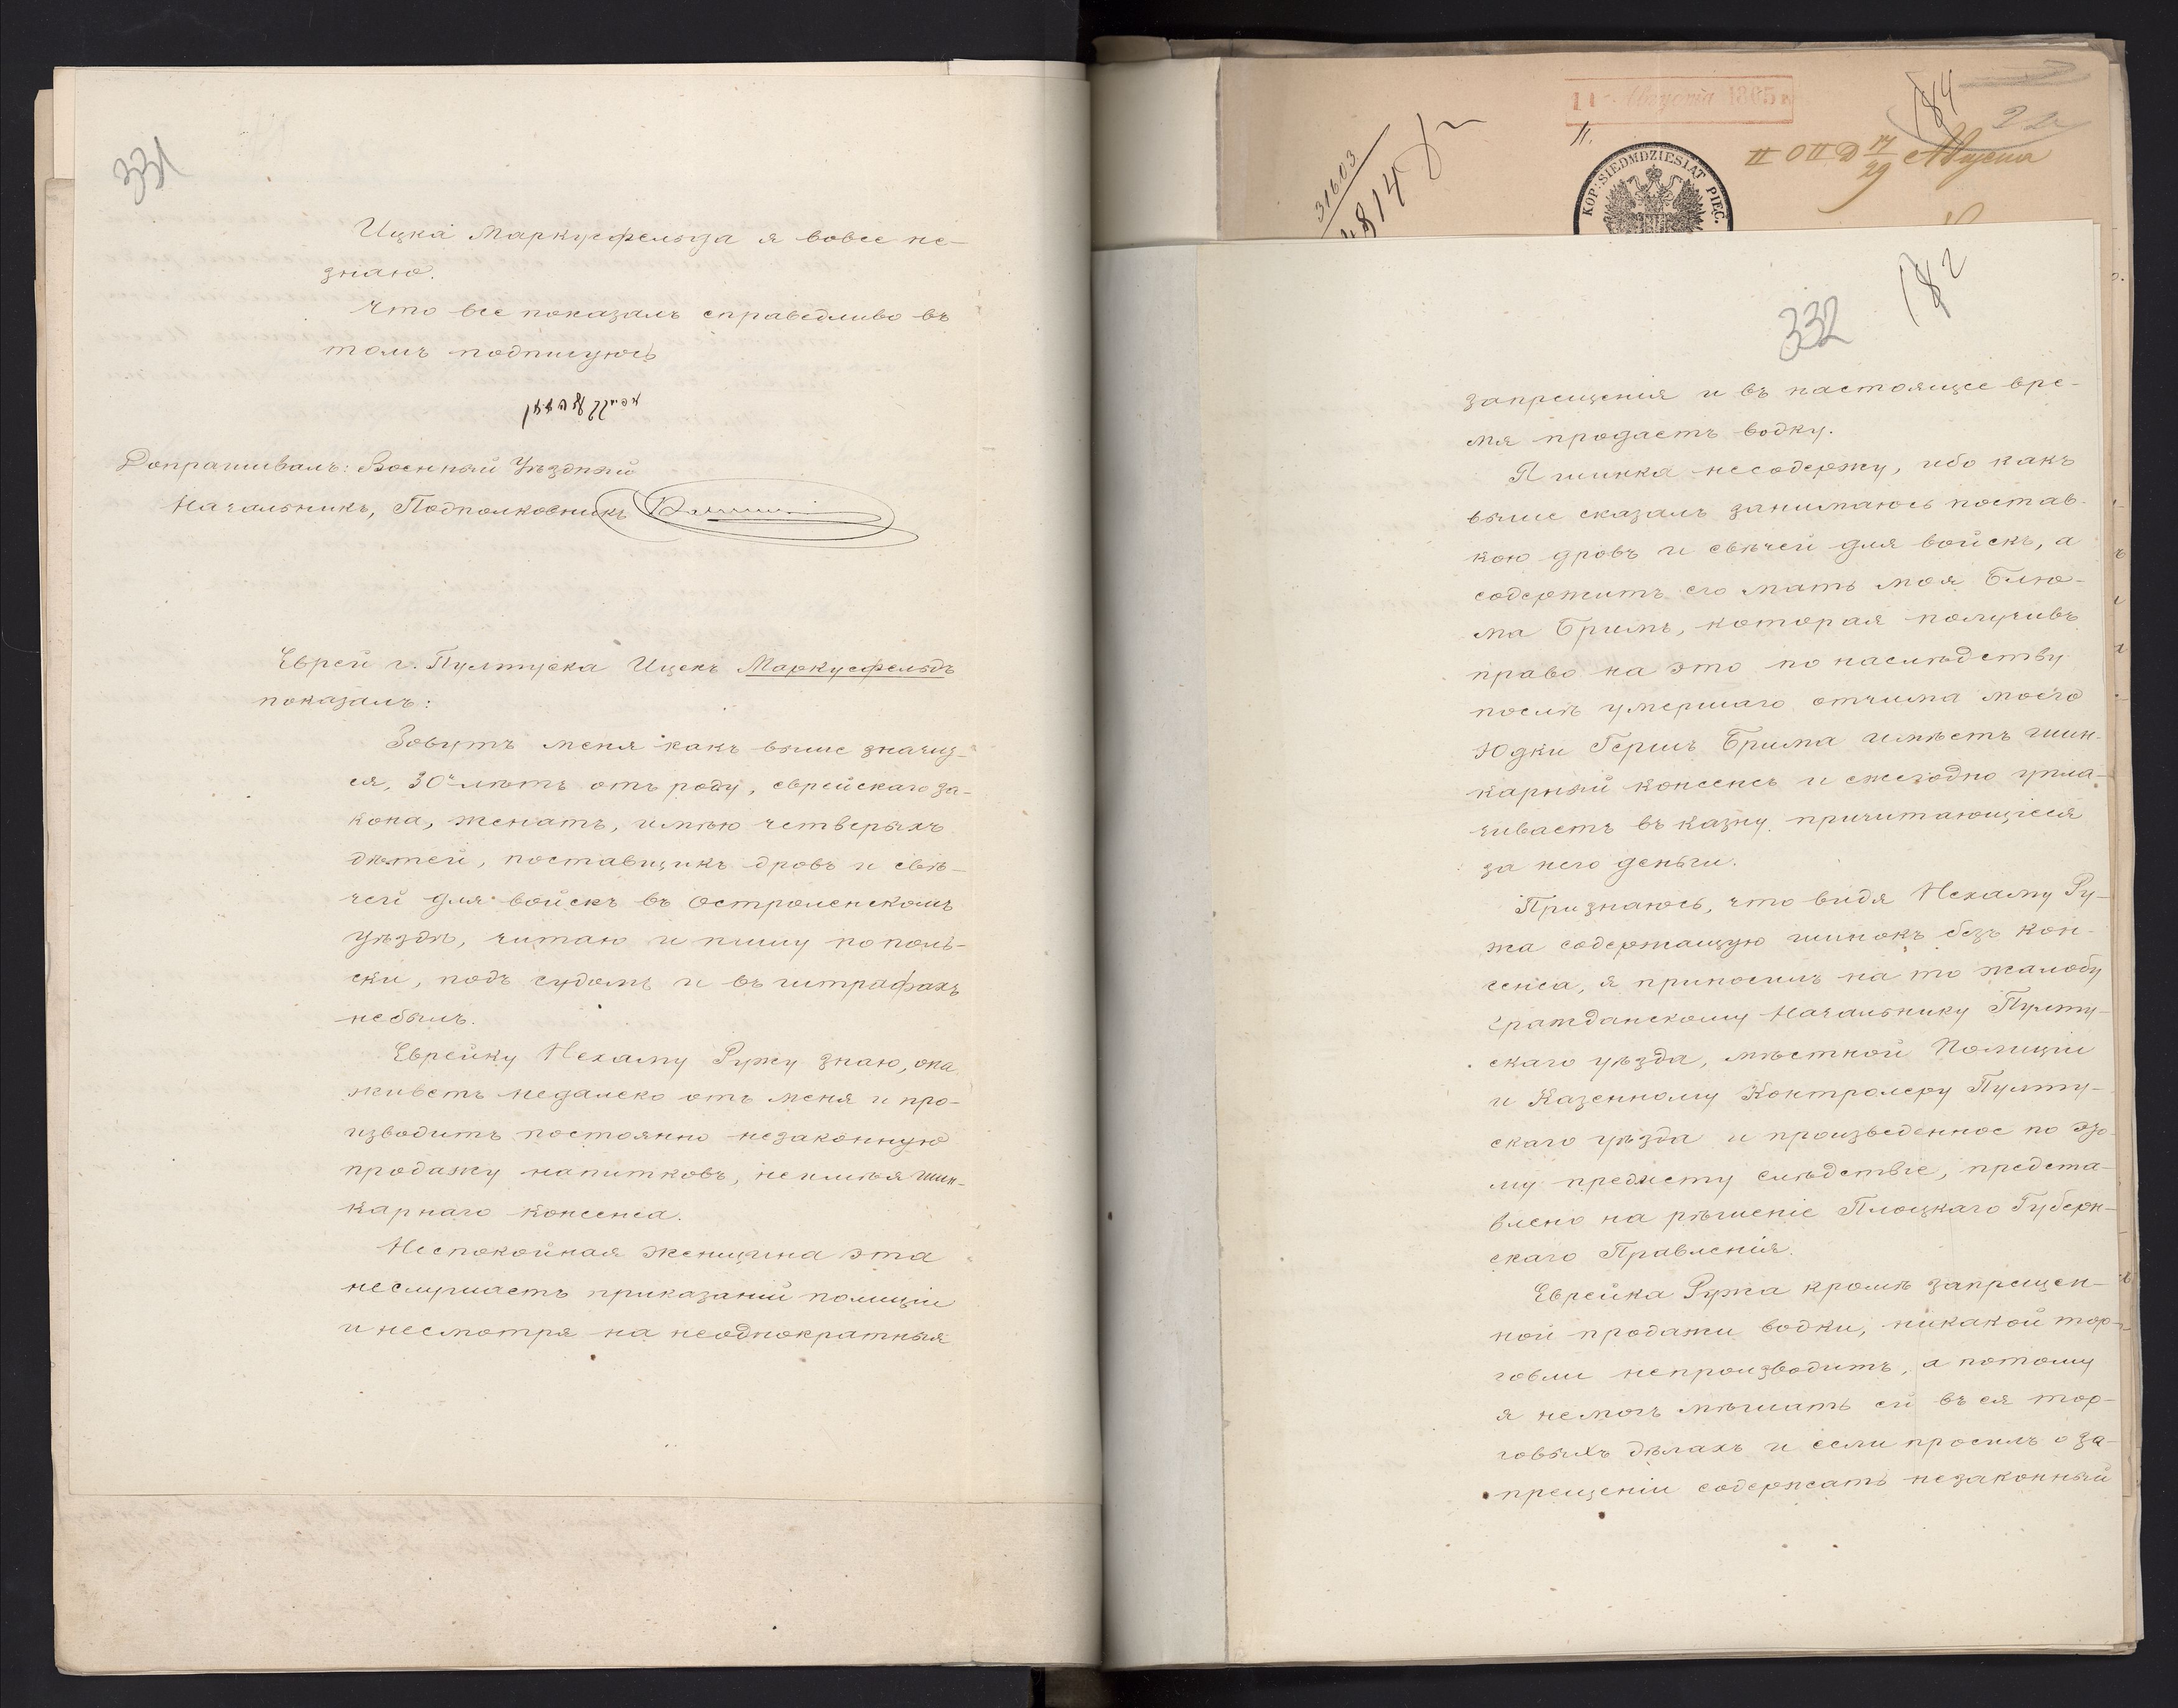 331
Ицка Маркусфельда я вовсе не-
знаю.
Что все показалъ справедливо въ
томъ подписуюсь
Допрашивалъ: Военный Уѣздный
Начальникъ, Подполковникъ
Еврей г. Пултуска Ицекъ Маркусфельдъ
показалъ:
Зовутъ меня какъ выше значит-
ся, 30ть лѣтъ отъ роду, еврейскаго за-
кона, женатъ, имѣю четверыхъ
дѣтей, поставщикъ дровъ и свѣ-
чей для войскъ въ Остроленскомъ
Уѣздѣ, читаю и пишу по поль-
ски, подъ судомъ и въ штрафахъ
небылъ.
Еврейку Нехаму Ружу знаю, она
живетъ недалеко отъ меня и про-
изводитъ постоянно незаконную
продажу напитковъ, неимѣя шин-
карнаго консенса.
Неспокойная женщина эта
неслушаетъ приказаній полиціи
и несмотря на неоднократныя
11 Августа 1865
11.
31603
4814
KOP: SIEDMDZIESIĄT PIĘĆ.
II О II Д 17/29 Августа
184
22
182
332
запрещенія и въ настоящее вре-
мя продаетъ водку.
Я шинка несодержу, ибо какъ
выше сказалъ занимаюсь постав-
кою дровъ и свѣчей для войскъ, а
содержитъ его мать моя Блю-
ма Бримъ, которая получивъ
право на это по наслѣдству
послѣ умершаго отчима моего
Юдки Гершъ Брима имѣетъ шин-
карный консенсъ и ежегодно упла-
чиваетъ въ казну причитающіеся
за него деньги.
Признаюсь, что видя Нехаму Ру-
жа содержащую шинокъ безъ кон-
сенса, я приносилъ на то жалобу
Гражданскому Начальнику Пулту-
скаго уѣзда, мѣстной Полиціи
и Казенному Контролеру Пулту-
скаго уѣзда и произведенное по это-
му предмету слѣдствіе, предста-
влено на рѣшеніе Плоцкаго Губерн-
скаго Правленія.
Еврейка Ружа кромѣ запрещен-
ной продажи водки, никакой тор-
говли непроизводитъ, а потому
я немогъ мѣшать ей въ ея тор-
говыхъ дѣлахъ и если просилъ о за-
прещеніи содержать незаконный